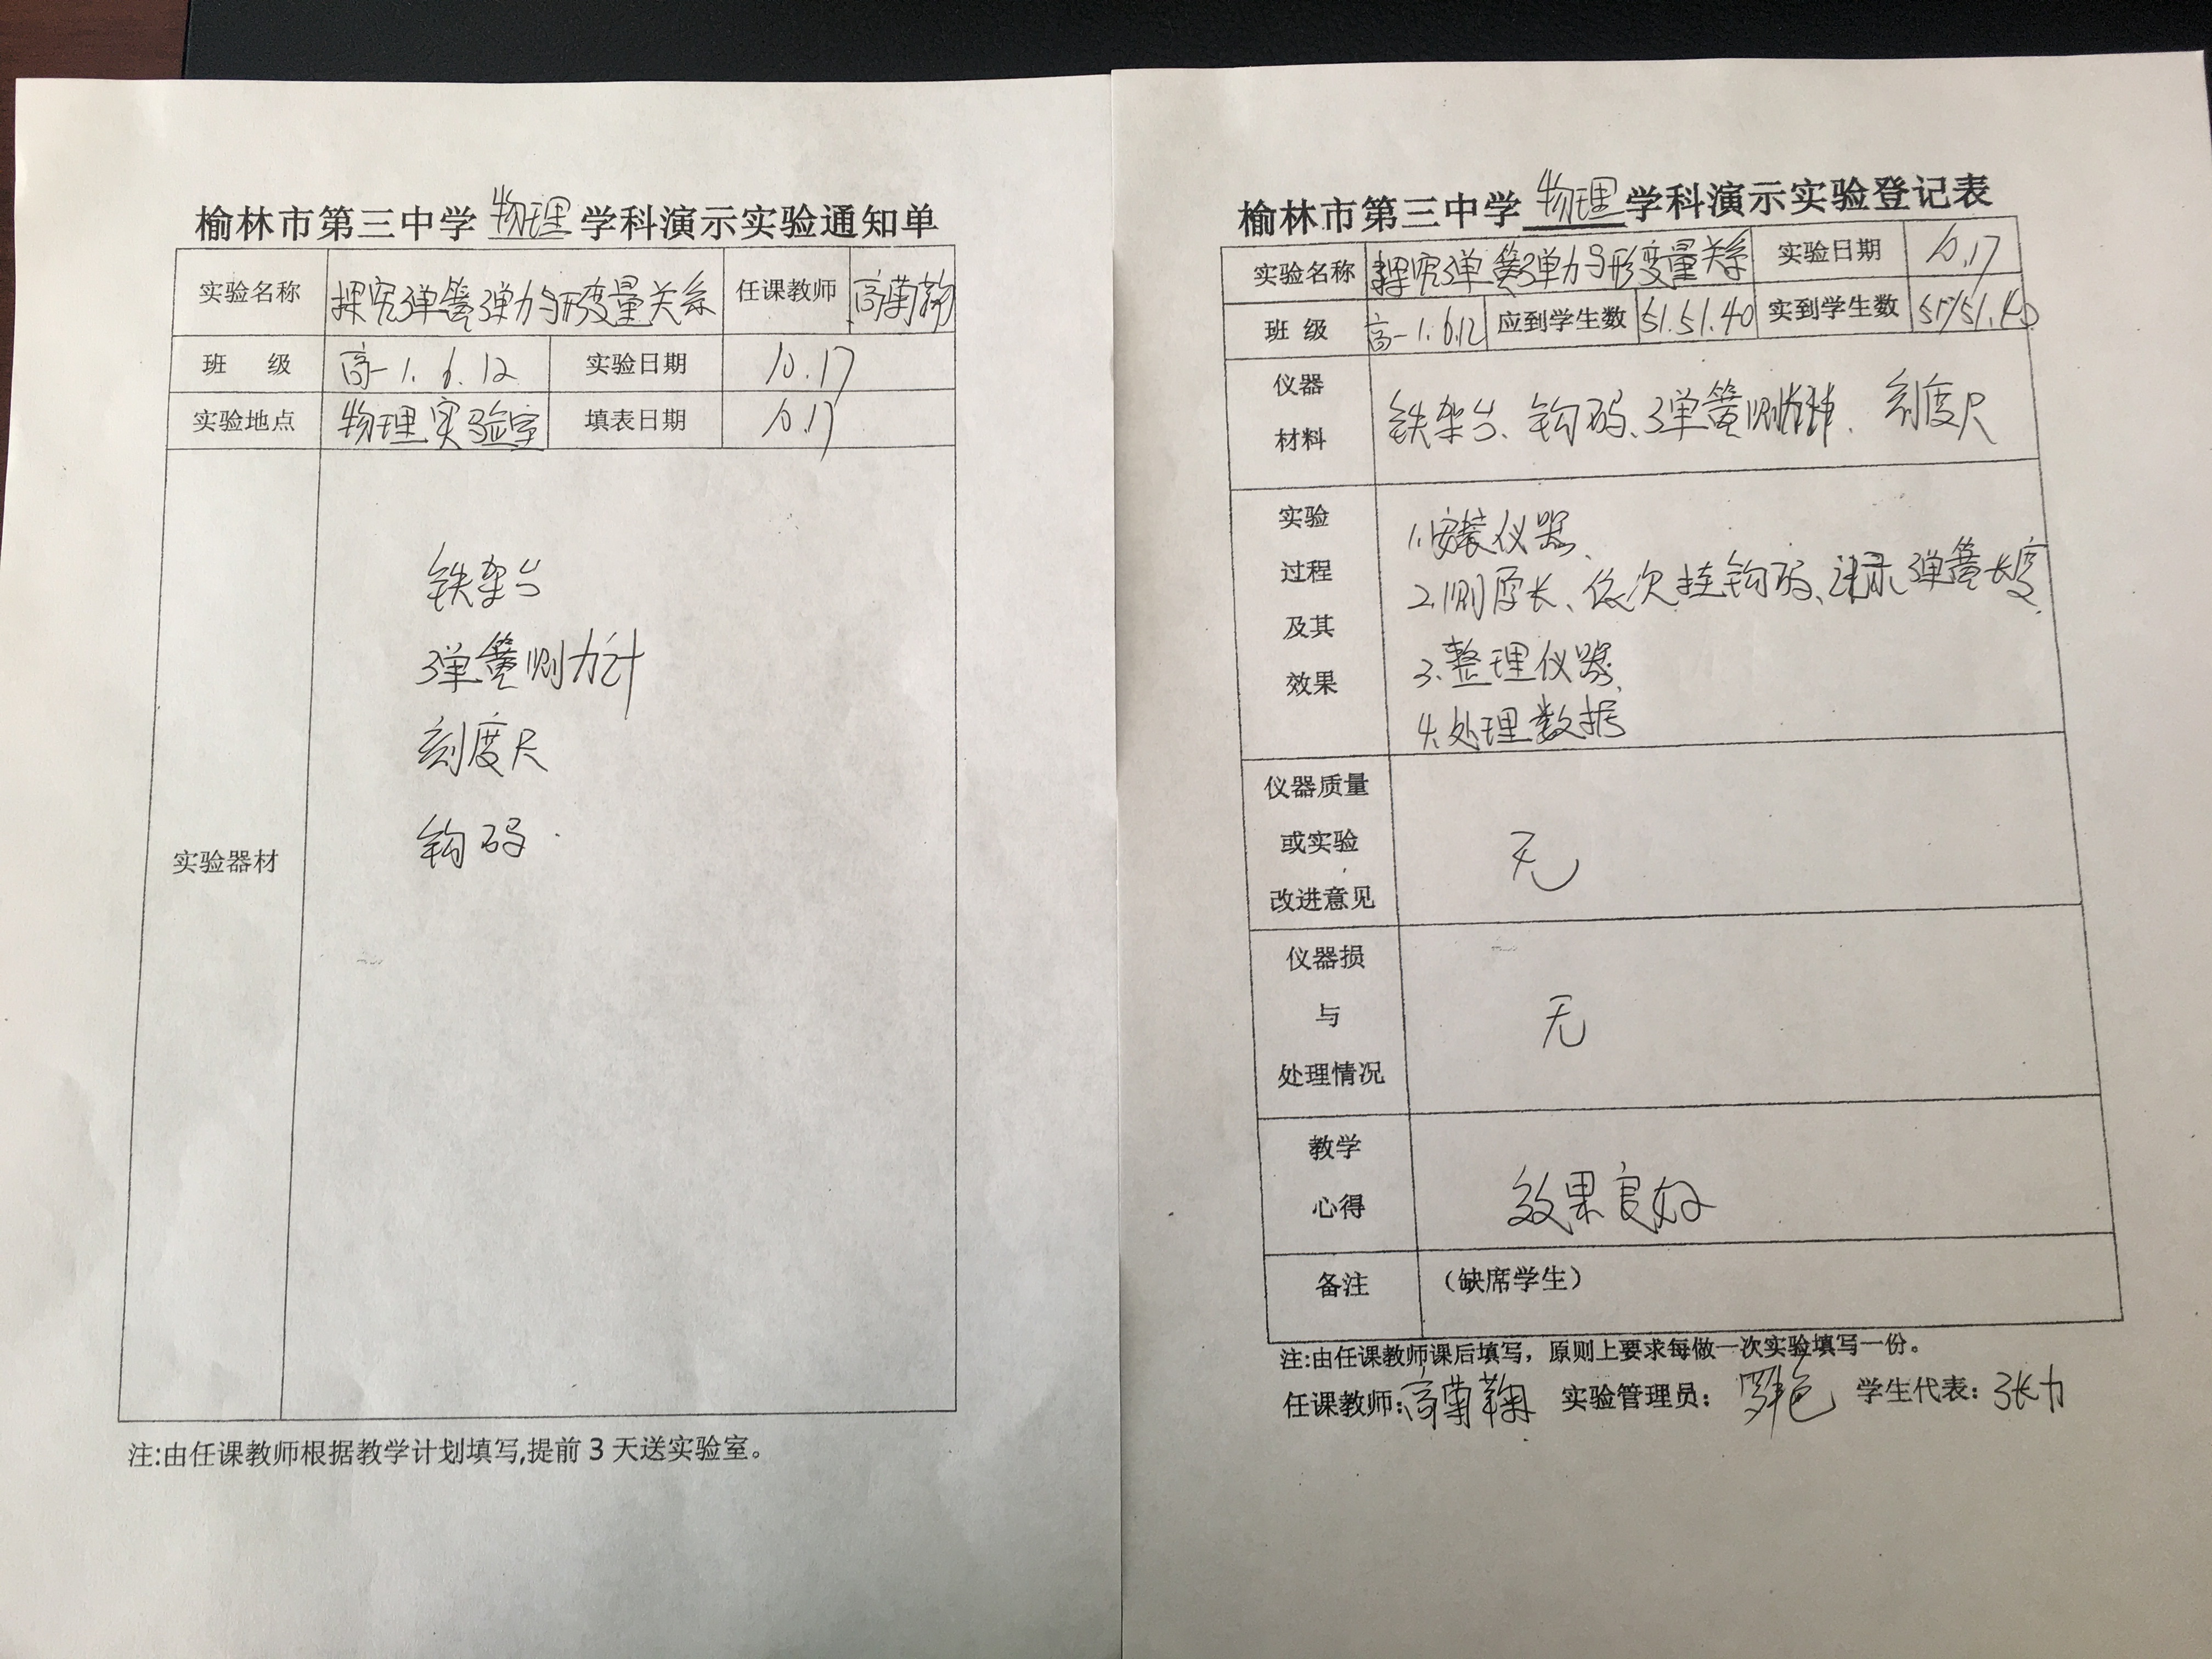 榆林市第三中学 物理 学科演示实验通知单
实验名称 探究弹簧弹力与形变量关系 任课教师 高菊鞠
班 级 高一1.6.12 实验日期 10.17
实验地点 物理实验室 填表日期 10.17
实验器材
铁架台
弹簧测力计
刻度尺
钩码
注:由任课教师根据教学计划填写,提前3天送实验室。
榆林市第三中学 物理 学科演示实验登记表
实验名称 探究弹簧弹力与形变量关系 实验日期 10.17
班 级 高一1.6.12 应到学生数 51.51.40 实到学生数 51.51.40
仪器
材料
铁架台、钩码、弹簧测力计、刻度尺
实验
过程
及其
效果
1.安装仪器、
2.测原长、依次挂钩码、记录弹簧长度、
3.整理仪器、
4.处理数据
仪器质量
或实验
改进意见
无
仪器损
与
处理情况
无
教学
心得
效果良好
备注 （缺席学生）
注:由任课教师课后填写，原则上要求每做一次实验填写一份。
任课教师:高菊鞠 实验管理员: 学生代表: 张力